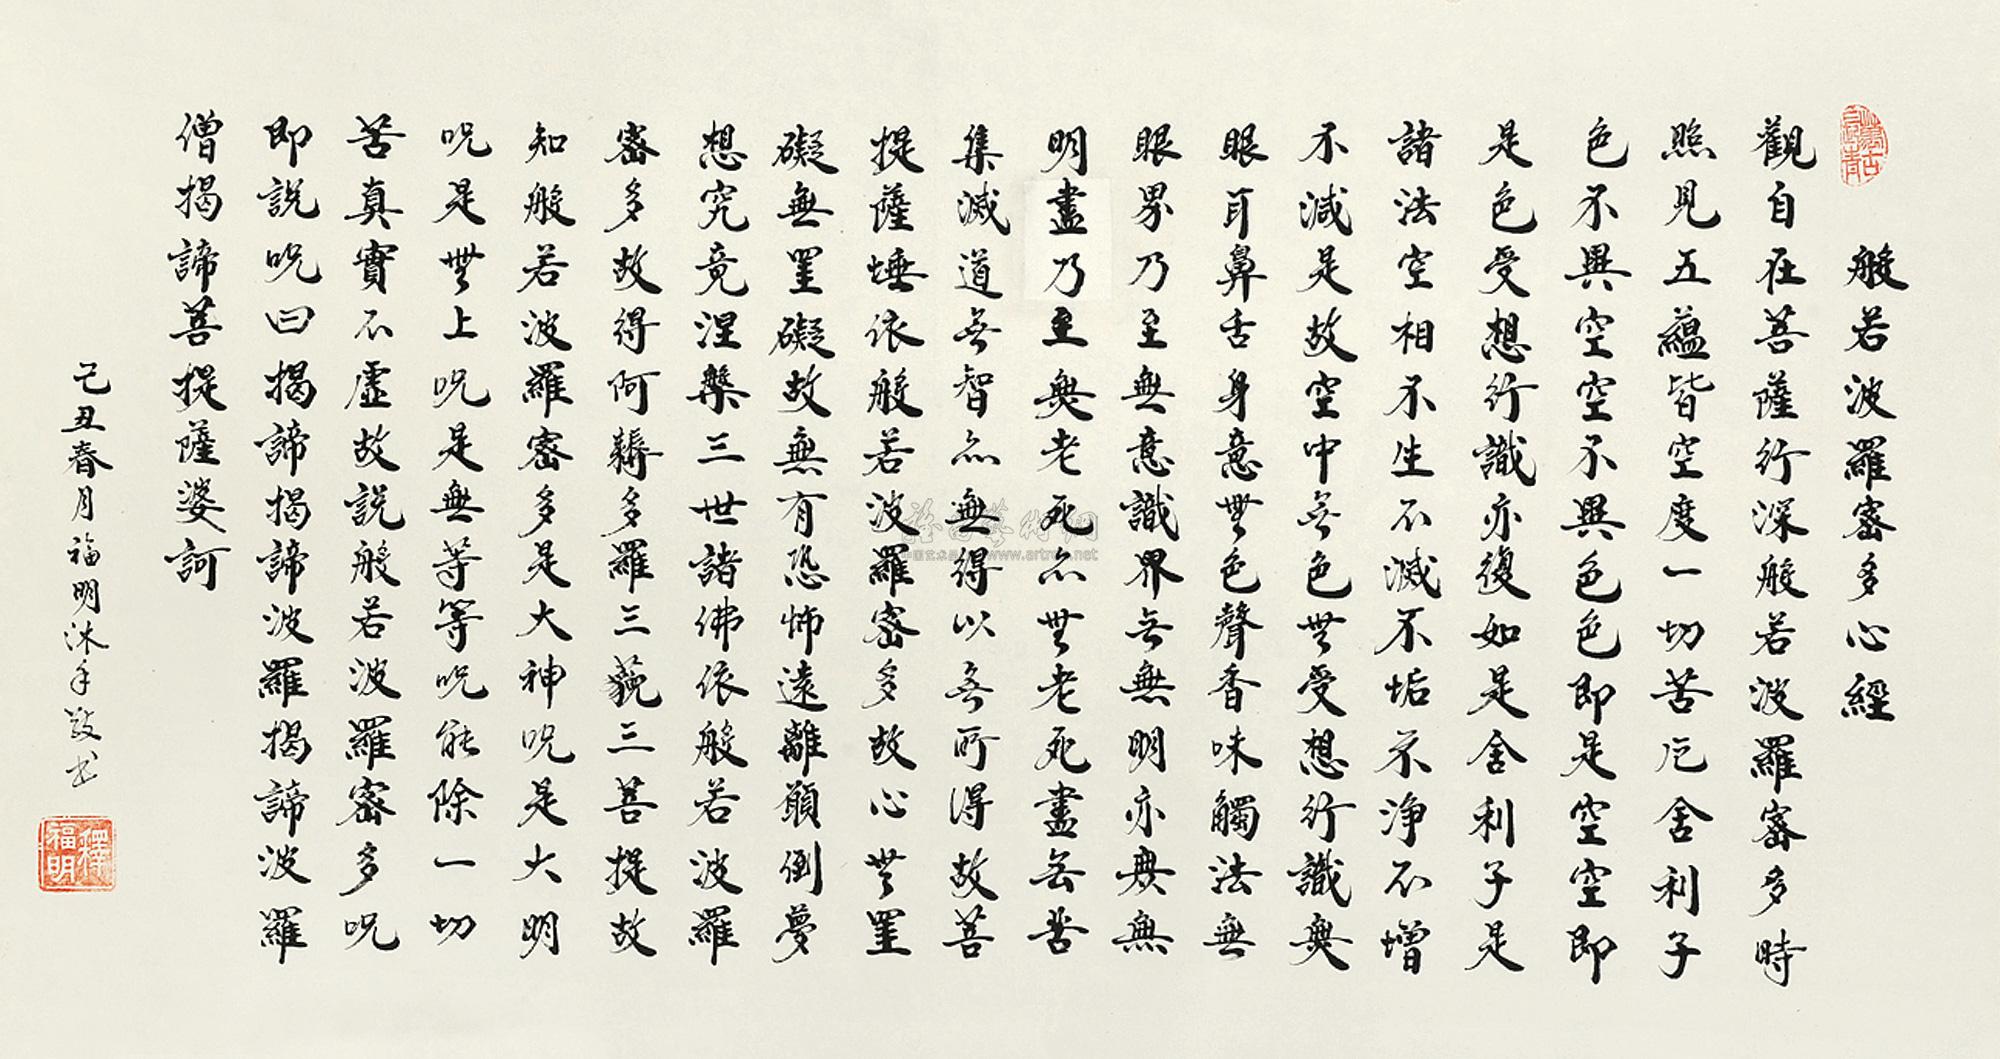 般若波羅密多心經
觀自在菩薩行深般若波羅密多時
照見五蘊皆空度一切苦厄舍利子
色不異空空不異色色即是空空即
是色受想行識亦復如是舍利子是
諸法空相不生不滅不垢不淨不增
不減是故空中無色無受想行識無
眼耳鼻舌身意無色聲香味觸法無
眼界乃至無意識界無無明亦無無
明盡乃至無老死亦無老死盡無苦
集滅道無智亦無得以無所得故菩
提薩埵依般若波羅密多故心無罣
礙無罣礙故無有恐怖遠離顛倒夢
想究竟涅槃三世諸佛依般若波羅
密多故得阿耨多羅三藐三菩提故
知般若波羅密多是大神呪是大明
呪是無上呪是無等等呪能除一切
苦真實不虛故說般若波羅密多呪
即說呪曰揭諦揭諦波羅揭諦波羅
僧揭諦菩提薩婆訶
己丑春月福明沐手敬書
釋福明
www.artron.net